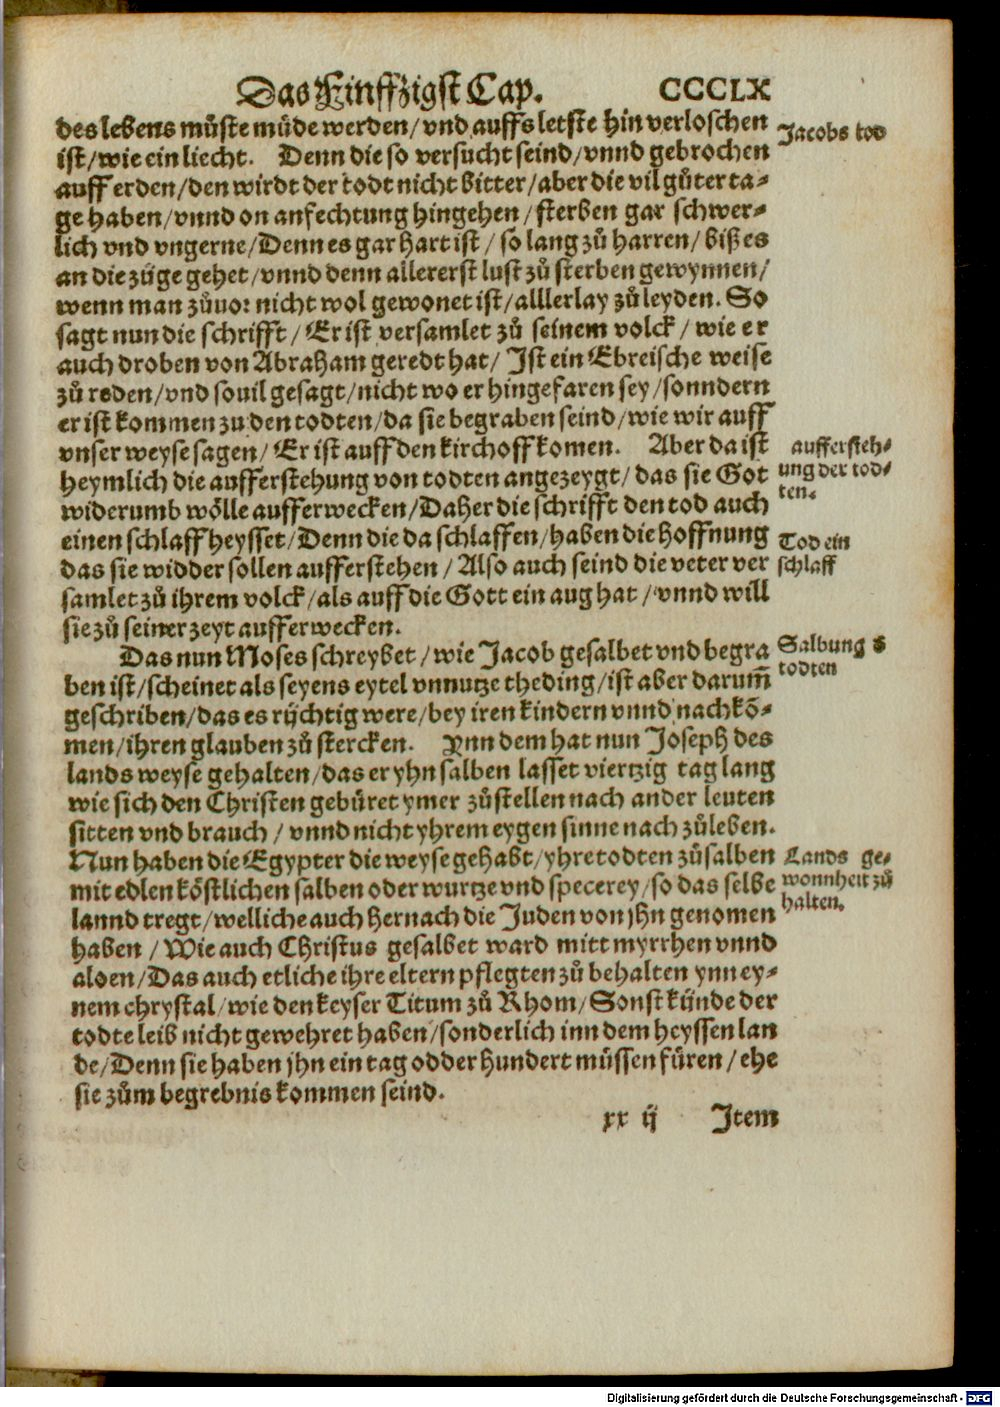 Das Finffzigst Cap. CCCLX
des lebens můste můde werden/ vnd auffs letste hin verloschen
ist/ wie ein liecht. Denn die so versucht seind/ vnnd gebrochen
auff erden/ den wirdt der todt nicht bitter/ aber die vil gůter ta-
ge haben/ vnnd on anfechtung hingehen/ sterben gar schwer-
lich vnd vngerne/ Denn es gar hart ist/ so lang zů harren/ biß es
an die züge gehet/ vnnd denn allererst lust zů sterben gewynnen/
wenn man zůuor nicht wol gewonet ist/ alllerlay zů leyden. So
sagt nun die schrifft/ Er ist versamlet zů seinem volck/ wie er
auch droben von Abraham geredt hat/ Ist ein Ebreische weise
zů reden/ vnd souil gesagt/ nicht wo er hingefaren sey/ sonndern
er ist kommen zu den todten/ da sie begraben seind/ wie wir auff
vnser weyse sagen/ Er ist auff den kirchoff komen. Aber da ist
heymlich die aufferstehung von todten angezeygt/ das sie Got
widerumb wölle aufferwecken/ Daher die schrifft den tod auch
einen schlaff heysset/ Denn die da schlaffen/ haben die hoffnung
das sie widder sollen aufferstehen/ Also auch seind die veter ver
samlet zů ihrem volck/ als auff die Gott ein aug hat/ vnnd will
sie zů seiner zeyt aufferwecken.
Das nun Moses schreybet/ wie Jacob gesalbet vnd begra
ben ist/ scheinet als seyens eytel vnnutze theding/ ist aber darum̄
geschriben/ das es rÿchtig were/ bey iren kindern vnnd nachkō-
men/ ihren glauben zů stercken. Ynn dem hat nun Joseph des
lands weyse gehalten/ das er yhn salben lasset viertzig tag lang
wie sich den Christen gebüret ymer zů stellen nach ander leuten
sitten vnd brauch/ vnnd nicht yhrem eygen sinne nach zů leben.
Nun haben die Egypter die weyse gehabt/ yhre todten zů salben
mit edlen köstlichen salben oder wurtze vnd specerey/ so das selbe
lannd tregt/ welliche auch hernach die Juden von jhn genomen
haben/ Wie auch Christus gesalbet ward mitt myrrhen vnnd
aloen/ Das auch etliche ihre eltern pflegten zů behalten ynn ey-
nem chrystal/ wie den keyser Titum zů Rhom/ Sonst künde der
todte leib nicht gewehret haben/ sonderlich inn dem heyssen lan
de/ Denn sie haben jhn ein tag odder hundert müssen füren/ ehe
sie zům begrebnis kommen seind.
xx ij Item
Jacobs tod
auffersteh-
ung der tod-
ten.
Tod ein
schlaff
Salbung d
todten
Lands ge-
wonnheit zů
halten.
Digitalisierung gefördert durch die Deutsche Forschungsgemeinschaft - DFG